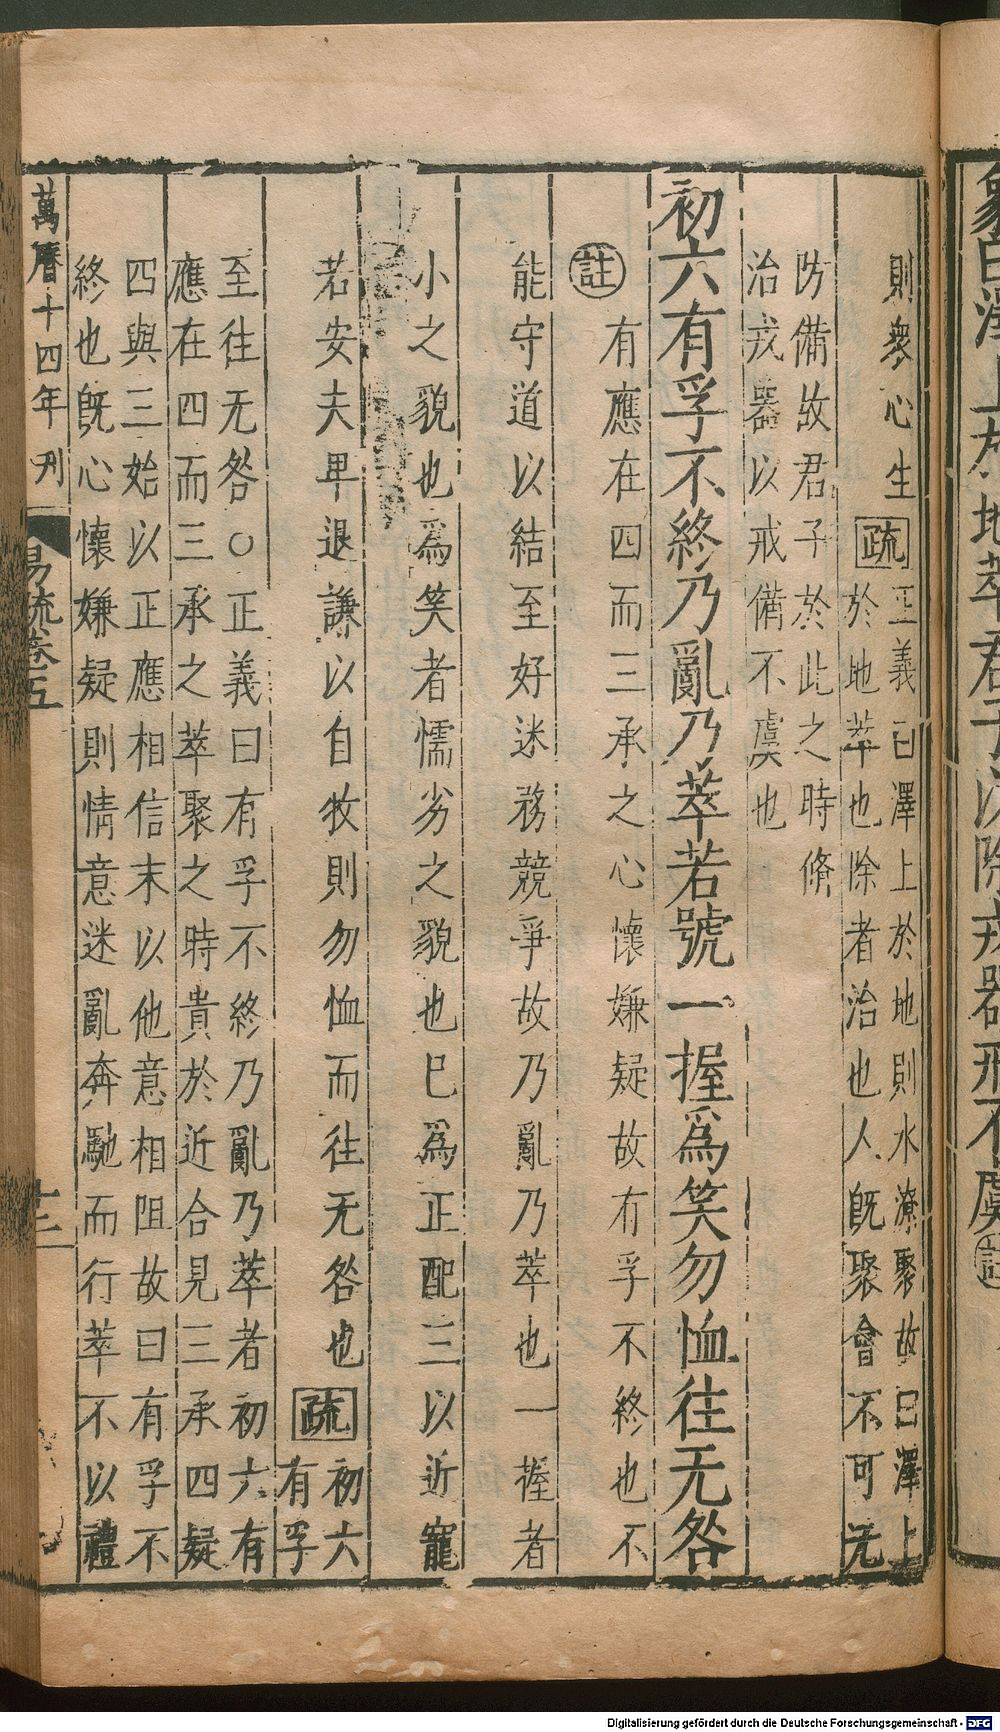 象曰澤上於地萃君子以除戎器戒不虞 註
則衆心生 疏 正義曰澤上於地則水潦聚故曰澤上
於地萃也除者治也人旣聚會不可无
防備故君子於此之時脩
治戎器以戒備不虞也
初六有孚不終乃亂乃萃若號一握爲笑勿恤往无咎
註 有應在四而三承之心懷嫌疑故有孚不終也不
能守道以結至好迷務競爭故乃亂乃萃也一握者
小之貌也爲笑者懦劣之貌也巳爲正配三以近寵
若安夫卑退謙以自牧則勿恤而往无咎也 疏 初六
有孚
至往无咎○正義曰有孚不終乃亂乃萃者初六有
應在四而三承之萃聚之時貴於近合見三承四疑
四與三始以正應相信末以他意相阻故曰有孚不
終也旣心懷嫌疑則情意迷亂奔馳而行萃不以禮
萬曆十四年刊 易疏卷五 十二
Digitalisierung gefördert durch die Deutsche Forschungsgemeinschaft - DFG